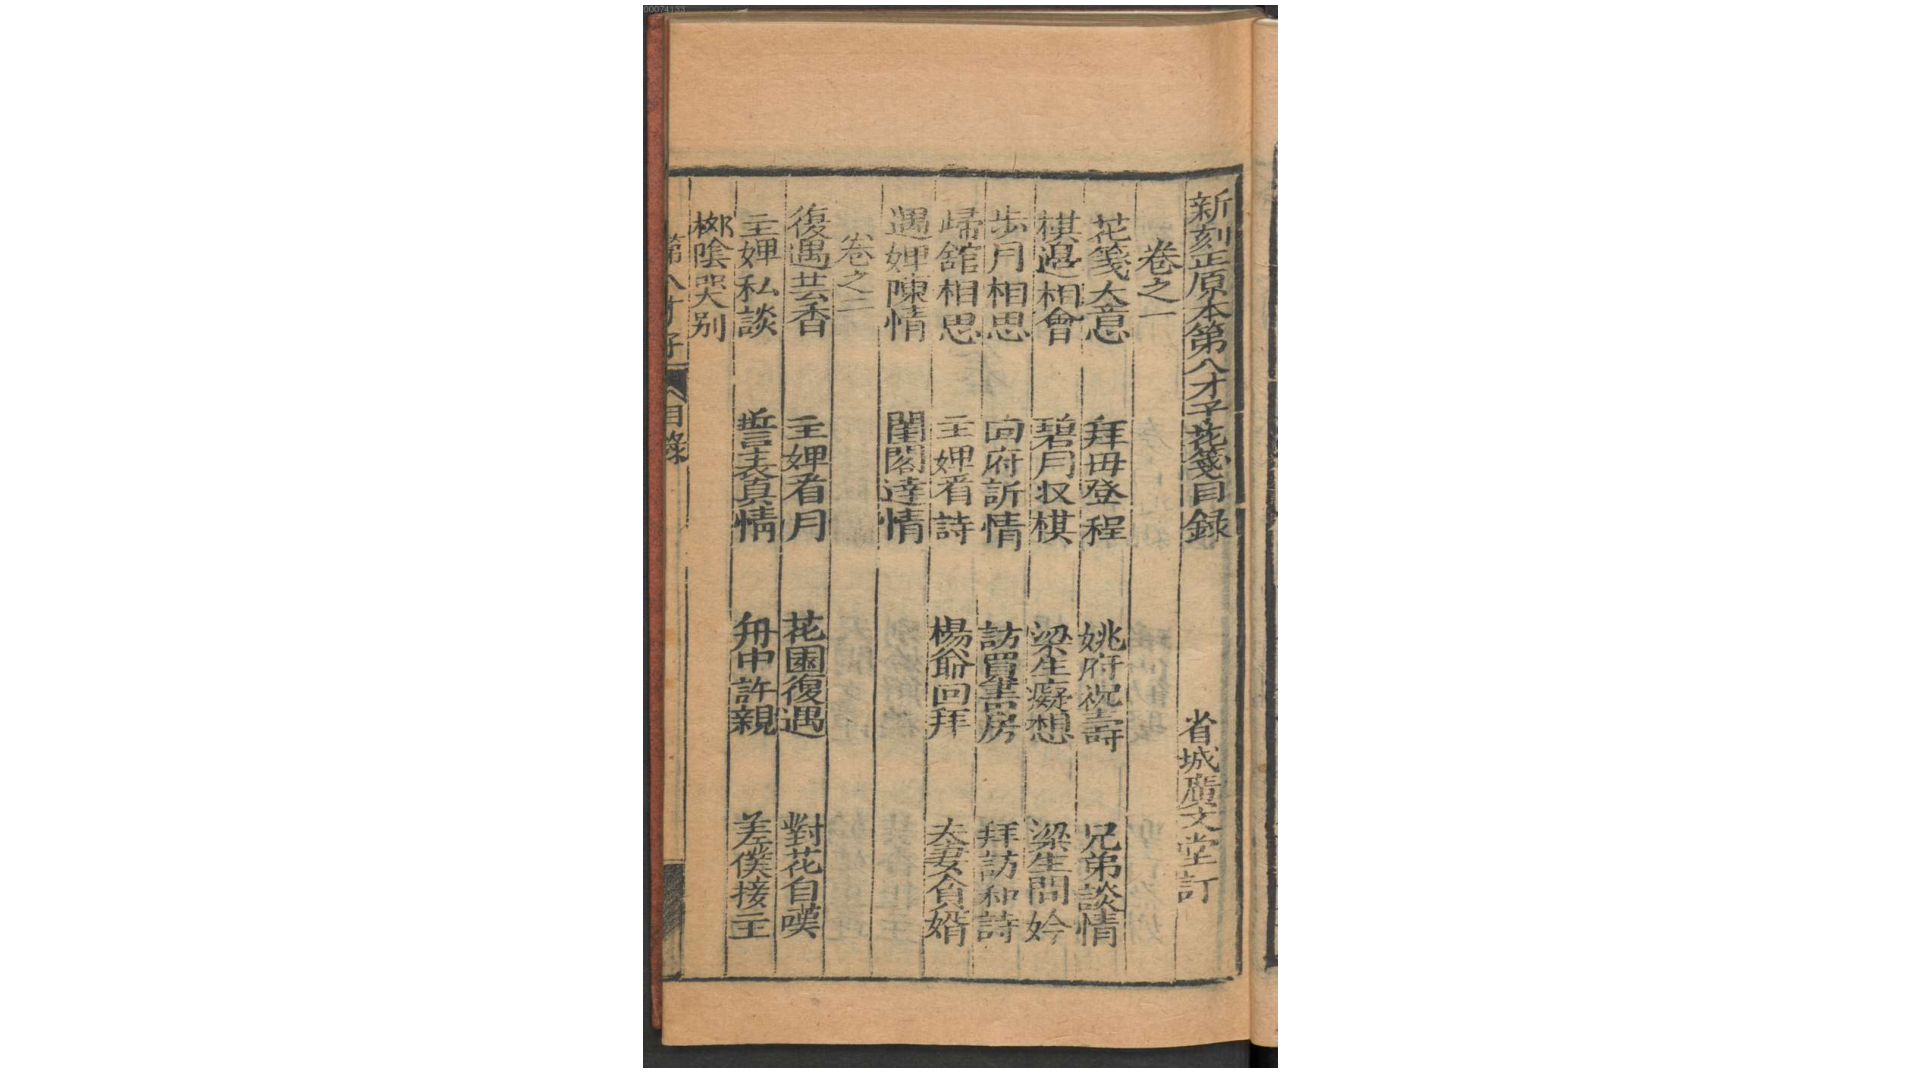 新刻正原本第八才子花箋目録
省城廣文堂訂
卷之一
花箋大意 拜母登程 姚府祝壽 兄弟談情
棋邉相會 碧月収棋 梁生癡想 梁生問妗
步月相思 回府訴情 訪買書房 拜訪和詩
歸舘相思 主婢看詩 楊爺回拜 夫妻貪婿
遇婢陳情 閨閣達情
卷之二
復遇芸香 主婢看月 花園復遇 對花自嘆
主婢私談 誓表真情 舟中許親 差僕接主
栁隂哭别
第八才子 目錄
00074133